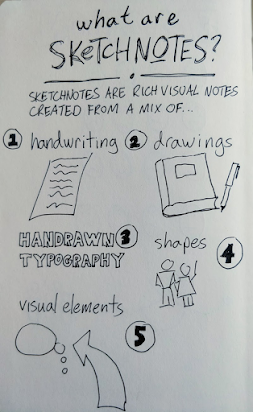 what are
SKETCHNOTES?
SKETCHNOTES ARE RICH VISUAL NOTES
CREATED FROM A MIX OF...
1 handwriting 2 drawings
HANDRAWN 3
TYPOGRAPHY
shapes 4
visual elements
5